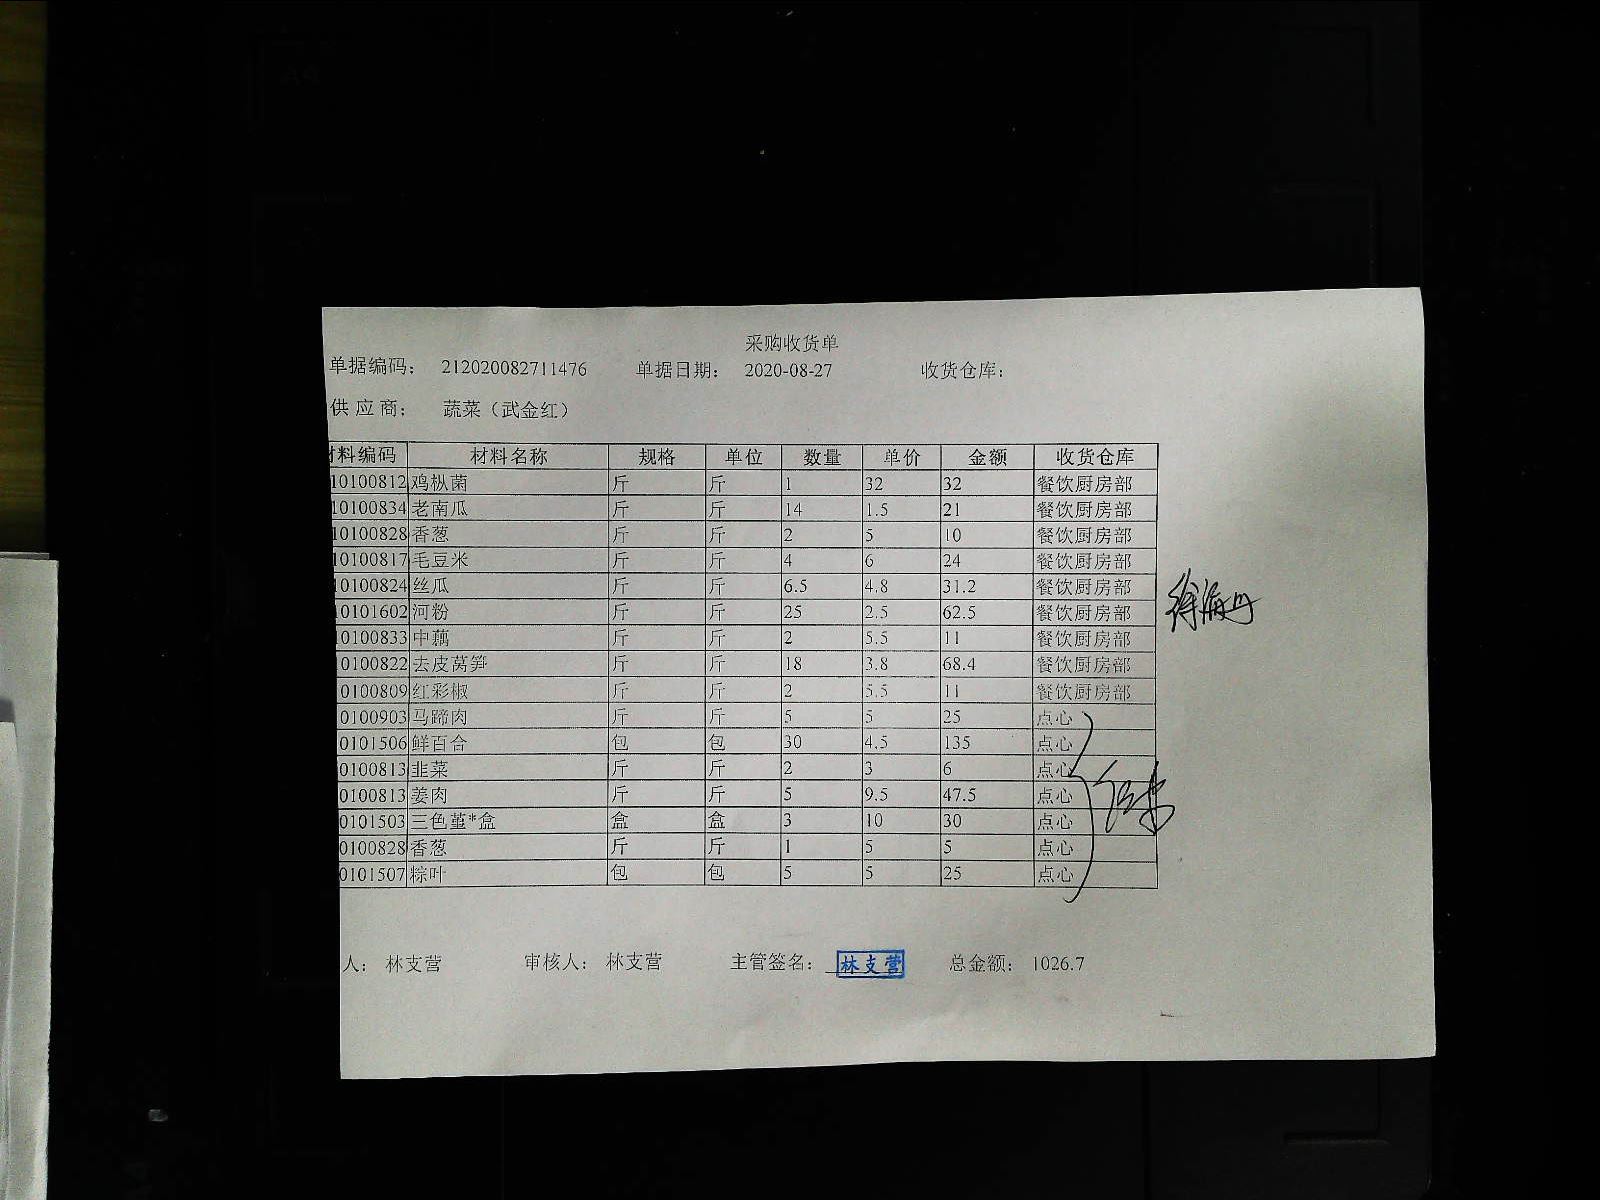 采购收货单
单据编码： 212020082711476 单据日期： 2020-08-27 收货仓库：
供 应 商： 蔬菜（武金红）
材料编码 材料名称 规格 单位 数量 单价 金额 收货仓库
10100812 鸡枞菌 斤 斤 1 32 32 餐饮厨房部
10100834 老南瓜 斤 斤 14 1.5 21 餐饮厨房部
10100828 香葱 斤 斤 2 5 10 餐饮厨房部
10100817 毛豆米 斤 斤 4 6 24 餐饮厨房部
10100824 丝瓜 斤 斤 6.5 4.8 31.2 餐饮厨房部
10101602 河粉 斤 斤 25 2.5 62.5 餐饮厨房部
10100833 中藕 斤 斤 2 5.5 11 餐饮厨房部
0100822 去皮莴笋 斤 斤 18 3.8 68.4 餐饮厨房部
0100809 红彩椒 斤 斤 2 5.5 11 餐饮厨房部
0100903 马蹄肉 斤 斤 5 5 25 点心
0101506 鲜百合 包 包 30 4.5 135 点心
0100813 韭菜 斤 斤 2 3 6 点心
0100813 姜肉 斤 斤 5 9.5 47.5 点心
0101503 三色堇*盒 盒 盒 3 10 30 点心
0100828 香葱 斤 斤 1 5 5 点心
0101507 粽叶 包 包 5 5 25 点心
人： 林支营 审核人： 林支营 主管签名： 林支营 总金额： 1026.7